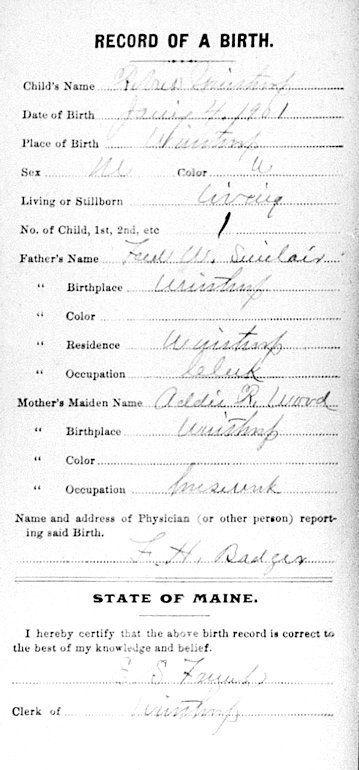 RECORD OF A BIRTH.
Child's Name Winthrop
Date of Birth 4, 1901
Place of Birth Winthrop
Sex M Color W
Living or Stillborn Living
No. of Child, 1st, 2nd, etc 1
Father's Name Fred W. Sinclair
" Birthplace Winthrop
" Color
" Residence Winthrop
" Occupation Clerk
Mother's Maiden Name Addie R. Wood
" Birthplace Winthrop
" Color
" Occupation
Name and address of Physician (or other person) report-
ing said Birth.
F. H. Badger
STATE OF MAINE.
I hereby certify that the above birth record is correct to
the best of my knowledge and belief.
S
Clerk of Winthrop